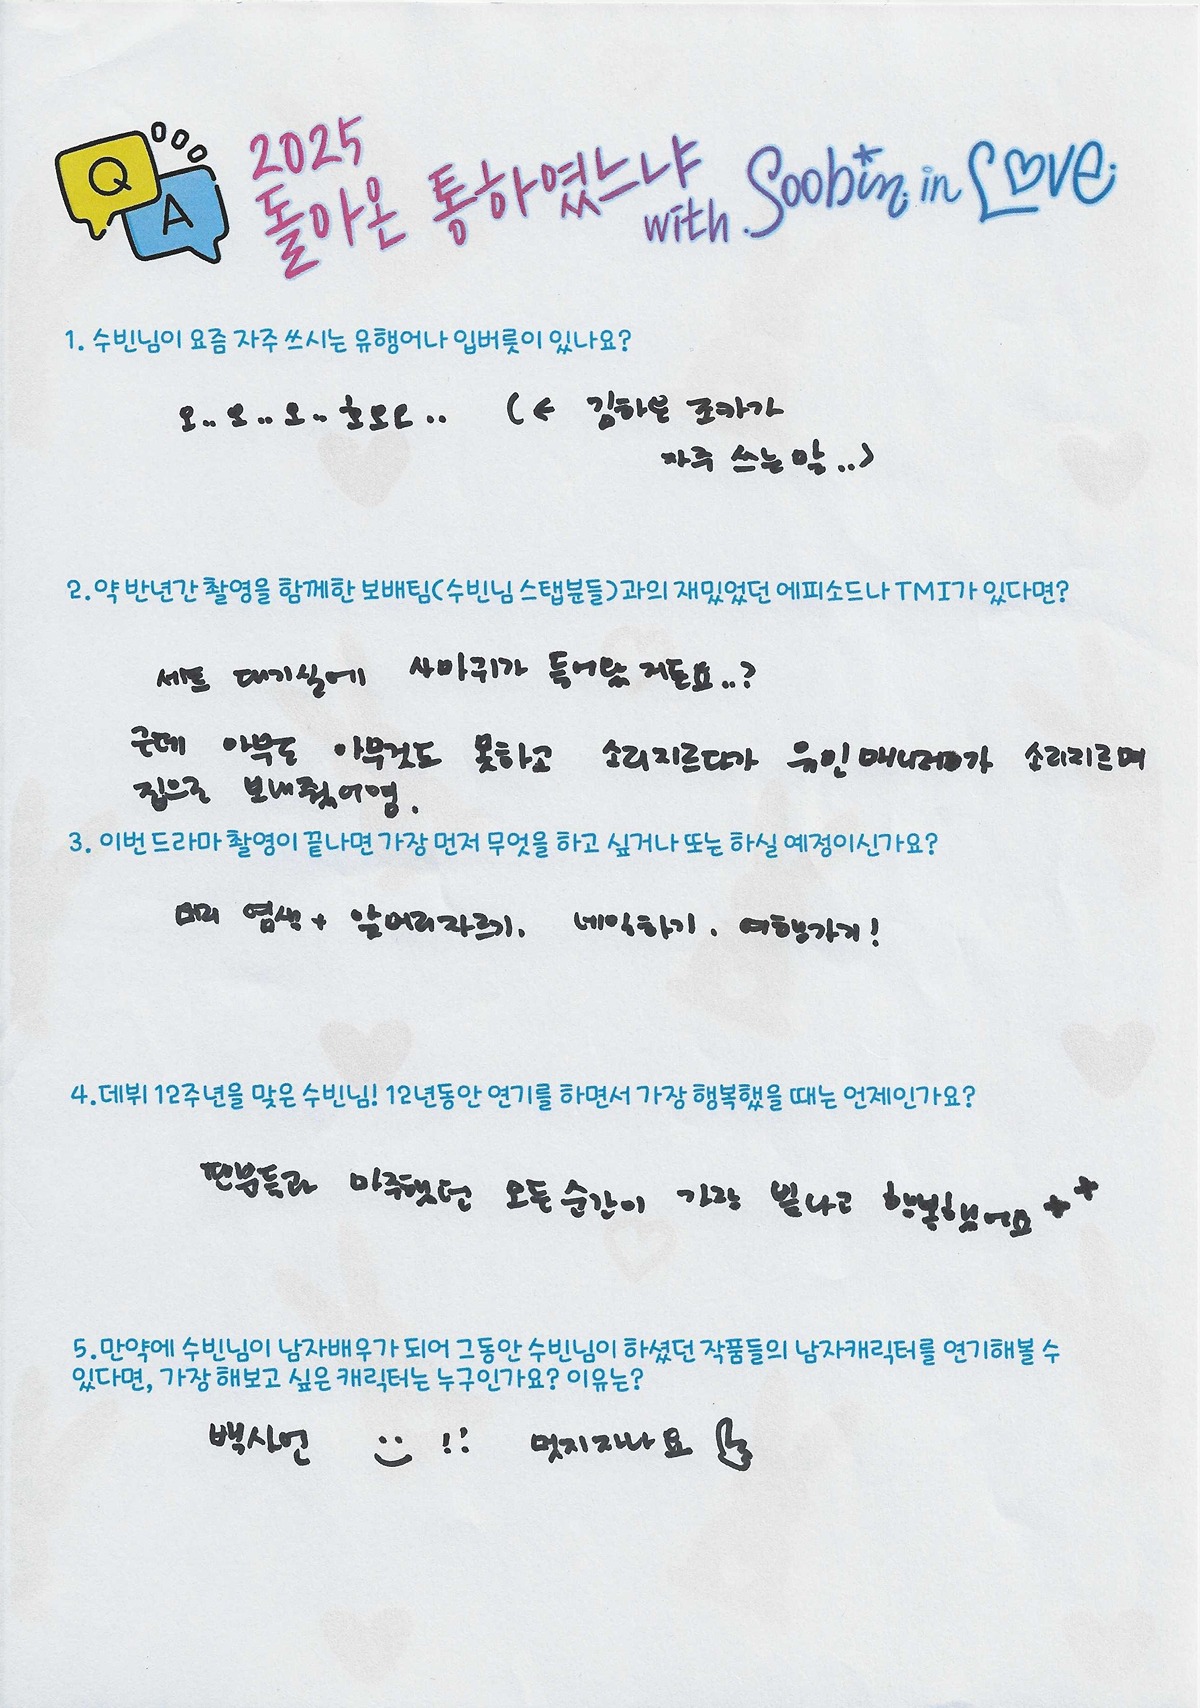 Q
A
2025
돌아온 통하였느냐
with Soobin in Love
1. 수빈님이 요즘 자주 쓰시는 유행어나 입버릇이 있나요?
오.. 오.. 오.. 호오오.. (← 김하분 조카가
자주 쓰는 말..)
2. 약 반년간 촬영을 함께한 보배팀(수빈님 스탭분들)과의 재밌었던 에피소드나 TMI가 있다면?
세트 대기실에 사마귀가 들어왔거든요..?
근데 아무도 아무것도 못하고 소리지르다가 유인매니저가 소리지르며
집으로 보내줬어염.
3. 이번 드라마 촬영이 끝나면 가장 먼저 무엇을 하고 싶거나 또는 하실 예정이신가요?
머리 염색 + 앞머리자르기. 네일하기. 여행가기!
4. 데뷔 12주년을 맞은 수빈님! 12년동안 연기를 하면서 가장 행복했을 때는 언제인가요?
팬분들과 마주했던 모든 순간이 가장 빛나고 행복했어요 ++
5. 만약에 수빈님이 남자배우가 되어 그동안 수빈님이 하셨던 작품들의 남자캐릭터를 연기해볼 수
있다면, 가장 해보고 싶은 캐릭터는 누구인가요? 이유는?
백사언 !! 멋지자나요